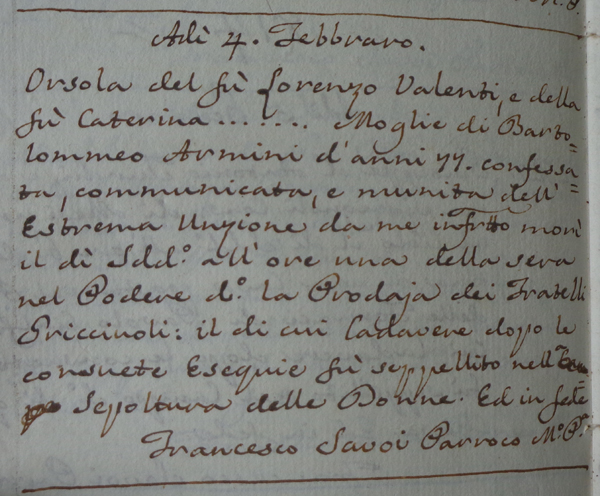 Adì 4. Febbraro.
Orsola del fù Lorenzo Valenti, e della
fù Caterina ....... Moglie di Barto=
lommeo Armini d'anni 77. confessa=
ta, communicata, e munita dell'
Estrema Unzione da me infrītto morì
il dì Sdd.º all'ore una della sera
nel Podere d.º la Prodaja dei Fratelli
Griccivoli: il di cui Cadavere dopo le
consuete Esequie fù seppellito nell
Sepoltura delle Donne. Ed in fede
Francesco Savoi Parroco M.º P.ª